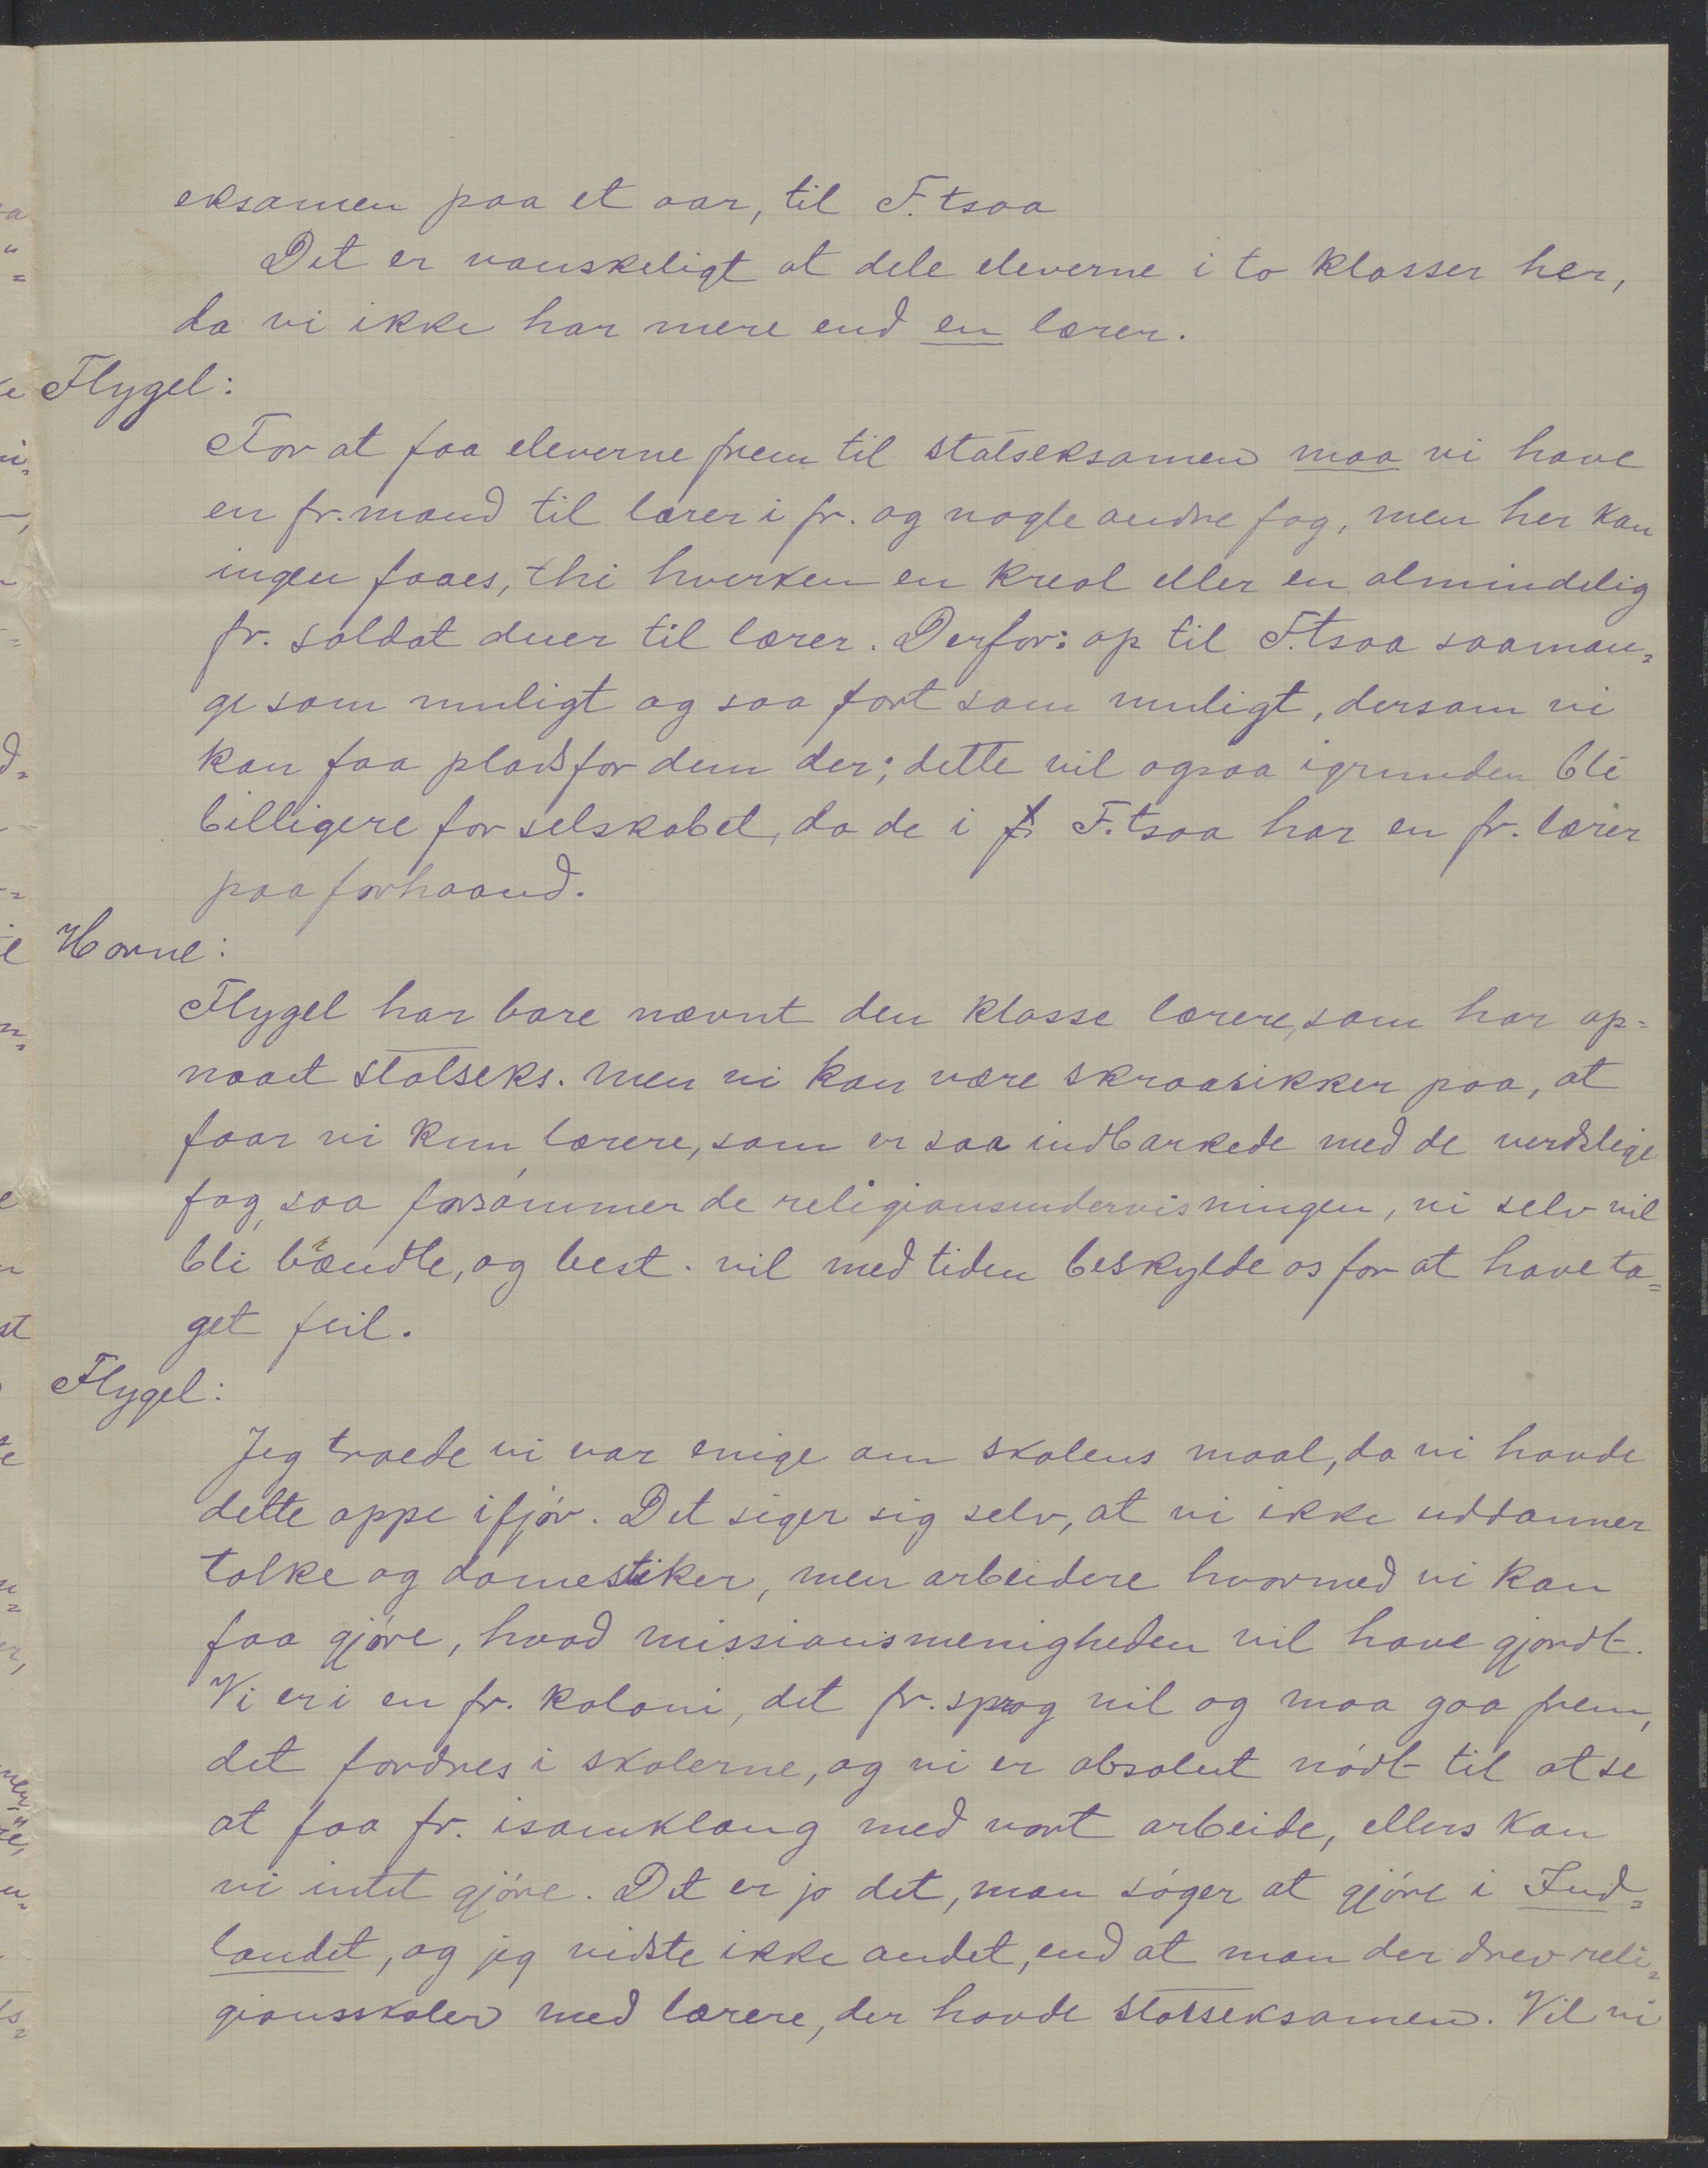 eksamen paa et aar, til F.tsoa
Det er vanskeligt at dele eleverne i to klasser her,
da vi ikke har mere end en lærer.
Flygel:
For at faa eleverne frem til statseksamen maa vi have
en fr. mand til lærer i fr. og nogle andre fag, men her kan
ingen faaes, thi hverken en kreol eller en almindelig
fr. soldat duer til lærer. Derfor: op til F.tsoa saaman=
ge som muligt og saa fort som muligt, dersom vi
kan faa plads for dem der; dette vil ogsaa igrunden bli
billigere for selskabet, da de i F.tsoa har en fr. lærer
paa forhaand.
Horne:
Flygel har bare nævnt den klasse lærere, som har op=
naaet statseks. men vi kan være skraasikker paa, at
faar vi kun lærere, som er saa indbarkede med de verdslige
fag, saa forsømmer de religionsundervisningen, vi selv vil
bli brændte, og best. vil med tiden beskylde os for at have ta=
get feil.
Flygel:
Jeg troede vi var enige om skolens maal, da vi havde
dette oppe ifjor. Det siger sig selv, at vi ikke uddanner
tolke og domestiker, men arbeidere hvormed vi kan
faa gjøre, hvad missionsmenigheden vil have gjordt.
Vi er i en fr. koloni, det fr. sprog vil og maa gaa frem,
det fordres i skolerne, og vi er absolut nødt til at se
at faa fr. isamklang med vort arbeide, ellers kan
vi intet gjøre. Det er jo det, man søger at gjøre i Ind=
landet, og jeg vidste ikke andet, end at man der drev reli=
gionsskoler med lærere, der havde statseksamen. Vil vi